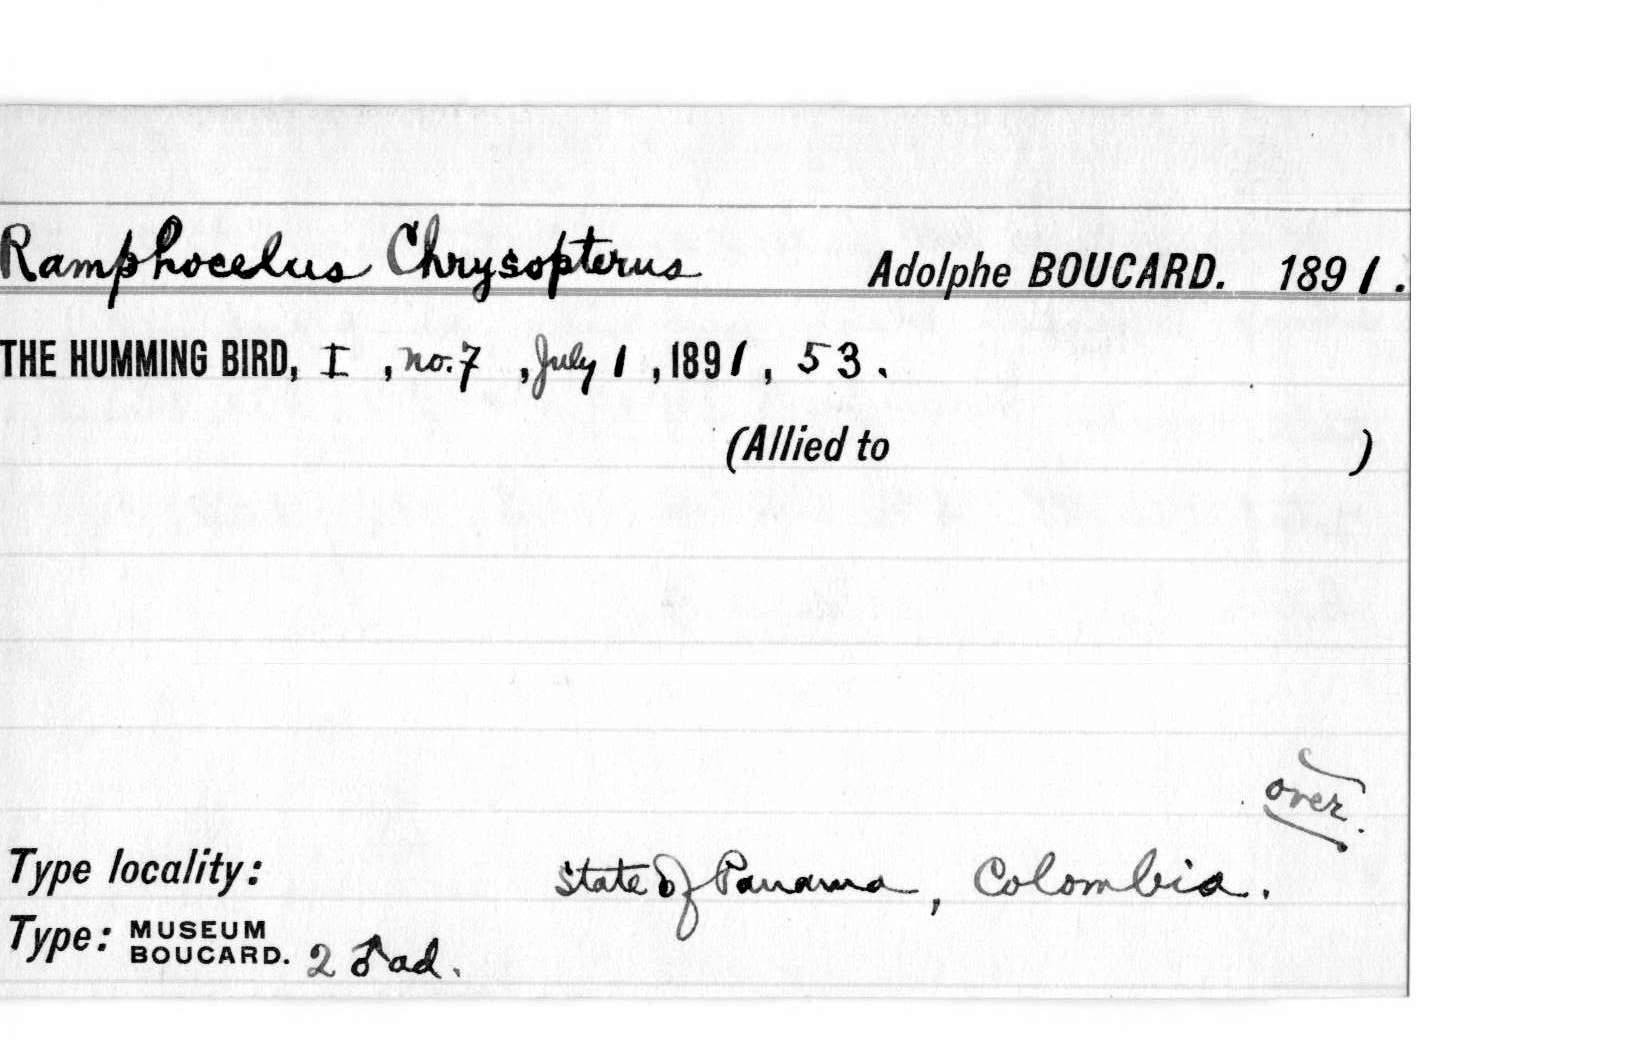 Ramphocelus Chrysopterus Adolphe BOUCARD. 1891.
THE HUMMING BIRD, I, no. 7, July 1, 1891, 53.
(Allied to )
over.
Type locality: State of Panama, Colombia.
Type: MUSEUM BOUCARD. 2 ♂ ad.